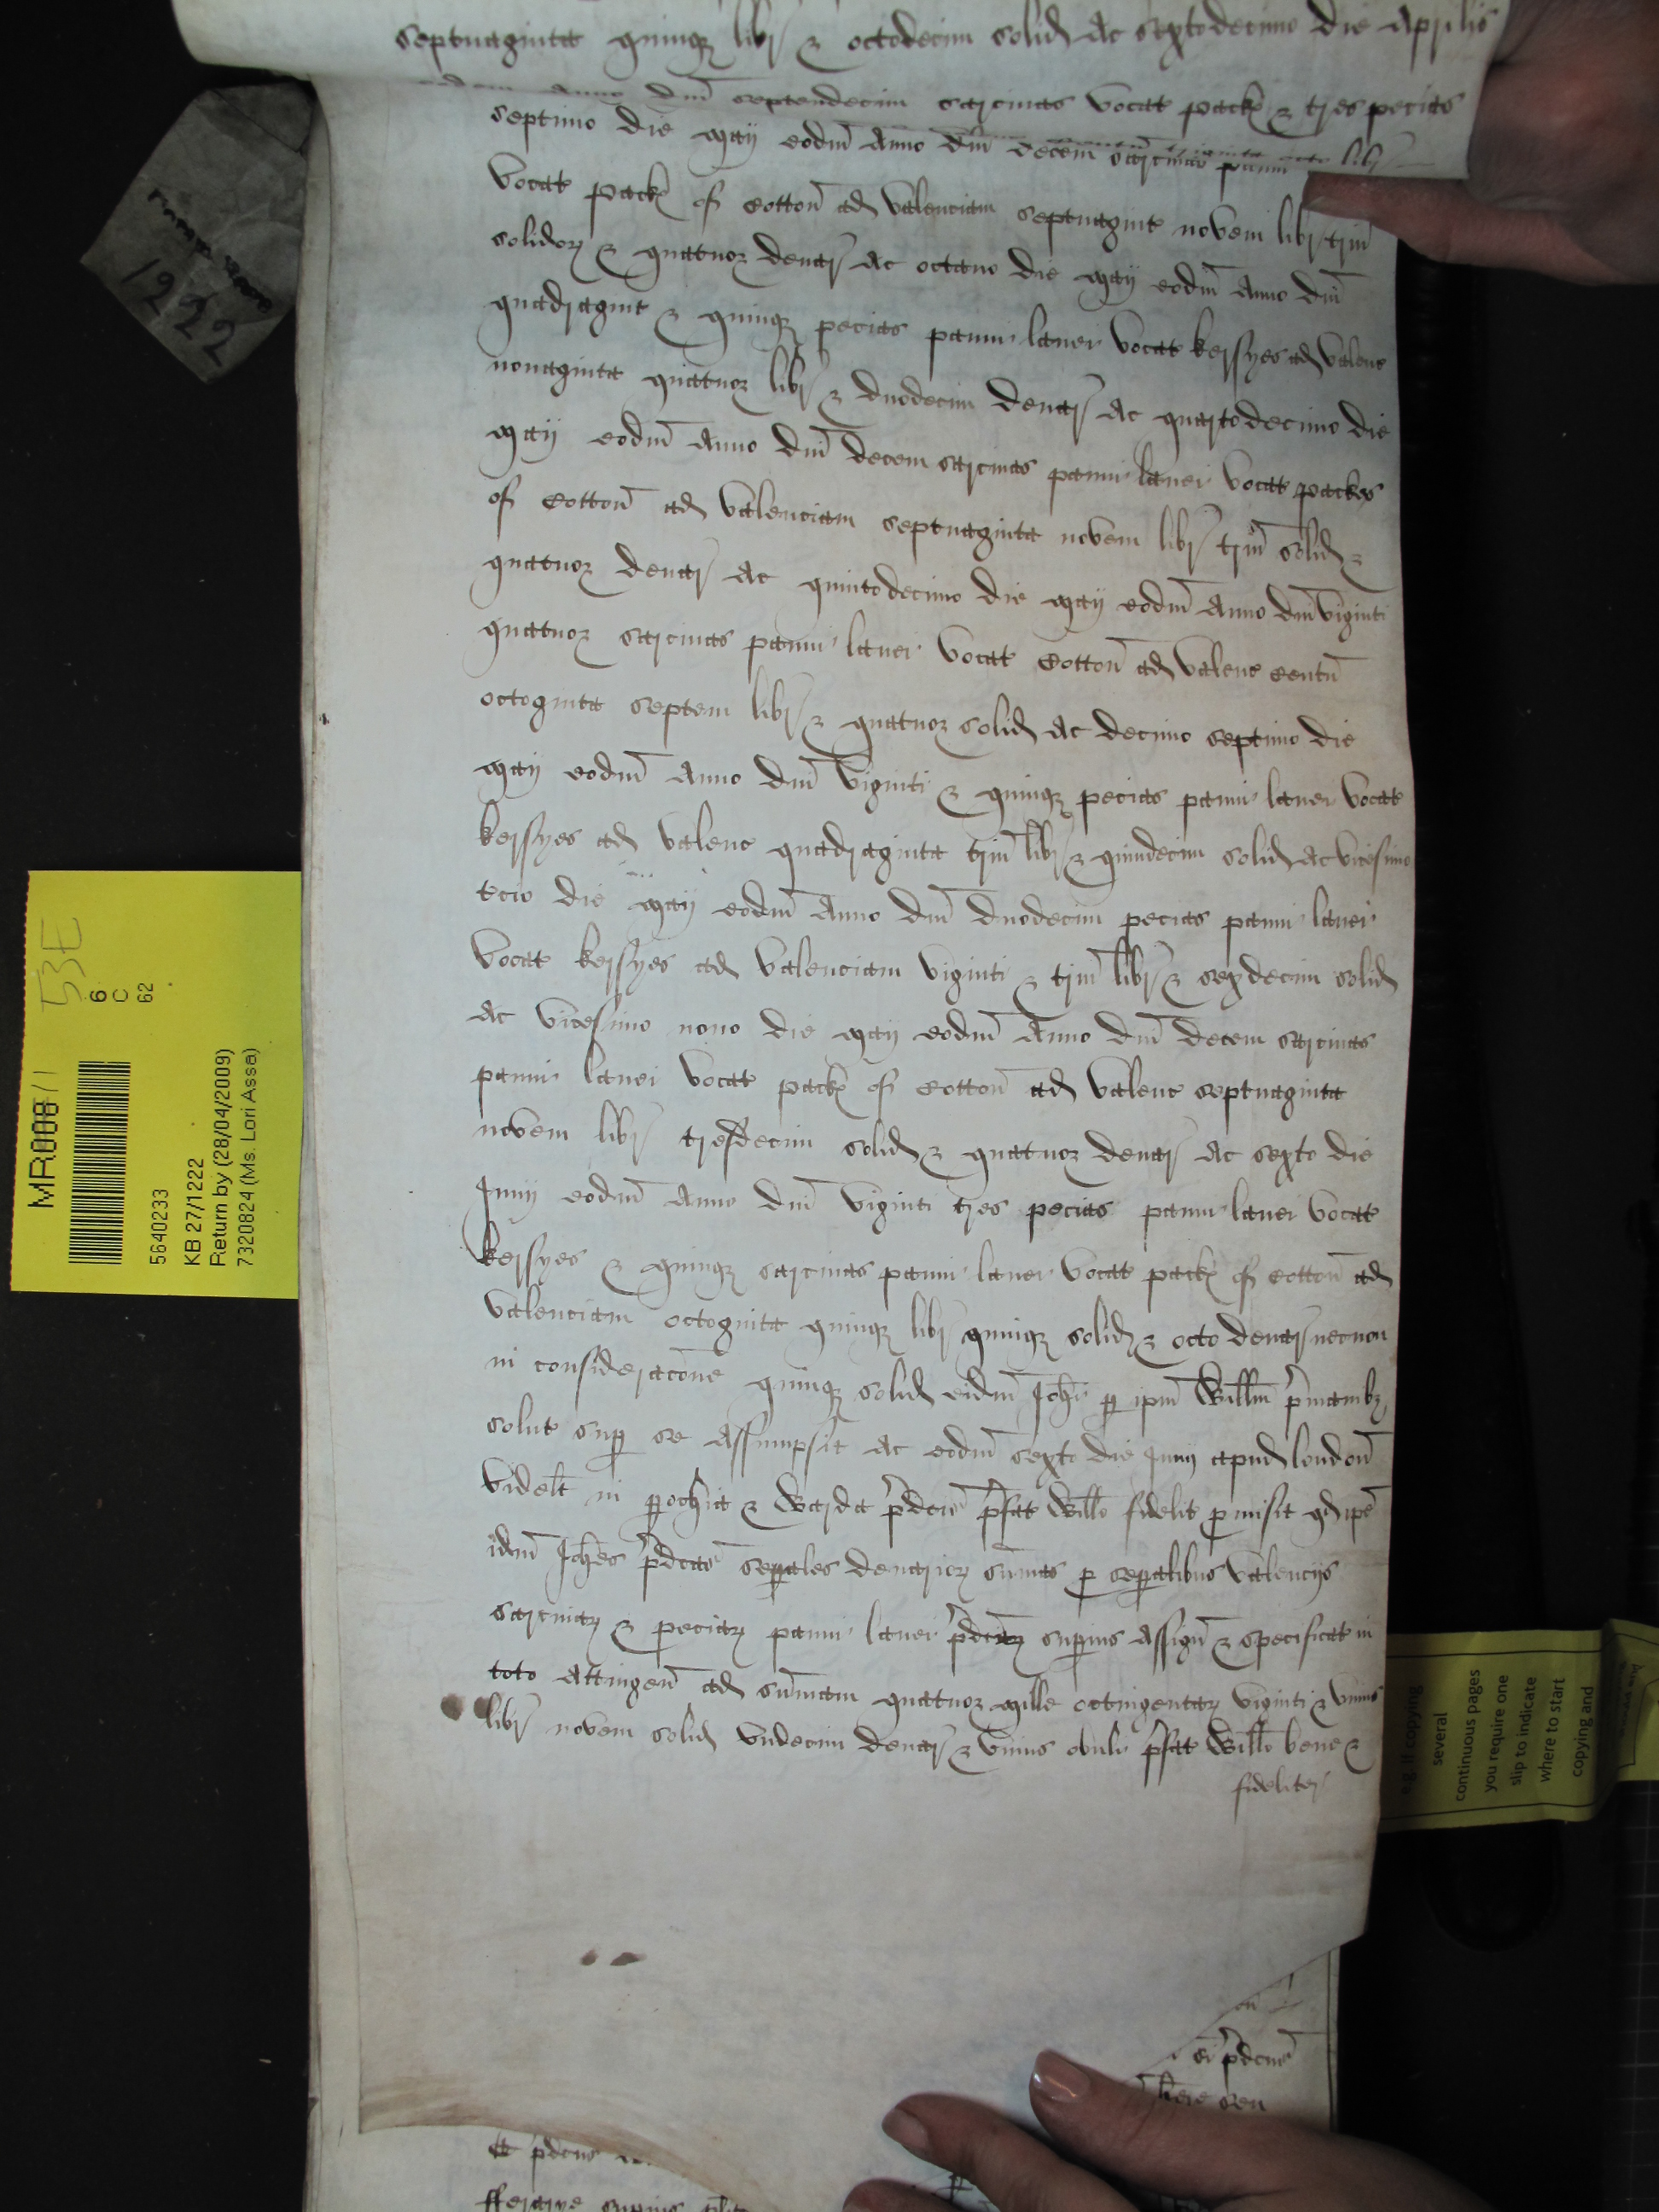 septuaginta quinqꝫ libr̃ & octodecim solid̃ Ac sextodecimo die Aprilis
Anno dñi septendecim sarcinas vocat̃ pack̃ & tres pecias
septimo die maij eodm̃ Anno dñi decem sarcinas panni
vocat̃ pack̃ of Cotton̄ ad valenciam septuagint̃ novem libr̃ triū
solidoꝝ & quatuor denar̃ Ac octavo die maij eodm̃ Anno dñi
quadragint̃ & quinqꝫ pecias panni lanei vocat̃ kersyes ad valenc̃
nonaginta quatuor libr̃ & duodecim denar̃ Ac quartodecimo die
maij eodm̃ Anno dñi decem sarcinas panni lanei vocat̃ packes
of Cotton̄ ad valenciam septuaginta novem libr̃ triū solid̃ &
quatuor denar̃ Ac quintodecimo die maij eodm̃ Anno dñi viginti
quatuor sarcinas panni lanei vocat̃ Cotton̄ ad valenc̃ Centū
octoginta septem libr̃ & quatuor solid̃ Ac decimo septimo die
maij eodm̃ Anno dñi viginti & quinqꝫ pecias panni lanei vocat̃
kersyes ad valenc̃ quadraginta triū libr̃ & quindecim solid̃ Ac vicesimo
t̃cio die maij eodm̃ Anno dñi duodecim pecias panni lanei
vocat̃ kersyes ad valenciam viginti & triū libr̃ & sexdecim solid̃
Ac vicesimo nono die maij eodm̃ Anno dñi decem sarcinas
panni lanei vocat̃ pack̃ of Cotton̄ ad valenc̃ septuaginta
novem libr̃ tresdecim solid̃ & quatuor denar̃ Ac sexto die
Junij eodm̃ Anno dñi viginti tres pecias panni lanei vocat̃
kersyes & quinqꝫ sarcinas panni lanei vocat̃ pack̃ of Cotton̄ ad
valenciam octoginta quinqꝫ libr̃ quinqꝫ solid̃ & octo denar̃ necnon
in consideracōne quinqꝫ solid̃ eidm̃ Joh̃i ꝑ ipm̃ Willm̃ p̃manibꝫ
solut̃ suꝑ se Assumpsit Ac eodm̃ sexto die Junij apud london̄
videlt̃ in ꝑochia & Warda p̃dcis̃ p̃fat̃ Willo fidelit̃ ꝓmisit qd̃ ip̃e
idm̃ Joh̃es p̃dcas̃ seꝑales denarioꝝ sum̃as ꝓ seꝑalibus valencijs
sarcinaꝝ & peciaꝝ panni lanei p̃dcaꝝ suꝑius Assign̄ & specificat̃ in
toto Attingen̄ ad sum̃am quatuor mille octingentaꝝ viginti & unius
libr̃ novem solid̃ undecim denar̃ & unius obuli p̃fat̃ Willo bene &
fidelit̃
p̃dcus
here seu
p̃dcus
1222
53E
6
C
62
MR008/1
5640233
KB 27/1222
Return by (28/04/2009)
7320824 (Ms. Lori Assa)
e.g. if copying
several
continuous pages
you require one
slip to indicate
where to start
copying and